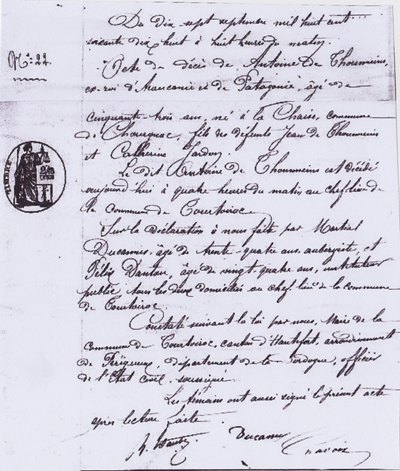 Du dix sept septembre mil huit cent
soixante dix huit à huit heures du matin.
Nº 22.
Acte de décès de Antoine De Thounneins,
ex-roi d'Araucanie et de Patagonie, âgé de
cinquante trois ans, né à la Chaise, commune
de Chourgnac, fils de défunts Jean de Thounneins
et Catherine Jardon.
Le dit Antoine de Thounneins est décédé
aujourd'hui à quatre heures du matin au chef lieu de
la commune de Tourtoirac.
Sur la déclaration à nous faite par Martial
âgé de trente quatre ans, aubergiste, et
Félix Dantou, âgé de vingt quatre ans, instituteur
public, tous les deux domiciliés au chef lieu de la commune
de Tourtoirac.
Constaté suivant la loi par nous, Maire de la
commune de Tourtoirac, canton d'Hautefort, arrondissement
de Périgueux, département de la Dordogne, officier
de l'Etat civil, soussigné.
Les témoins ont aussi signé le présent acte
après lecture faite.